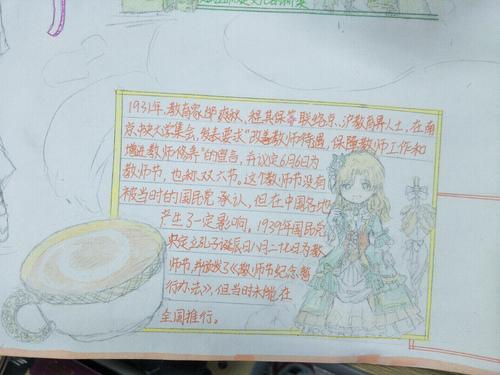 1931年,教育家邰爽秋、程其保等联络京、沪教育界人士,在南
京中央大学集会,发表要求"改善教师待遇,保障教师工作和
增进教师修养"的宣言,并议定6月6日为
教师节,也称双六节。这个教师节没有
被当时的国民党承认,但在中国各地
产生了一定影响。1939年国民党
决定立孔子诞辰日八月二七日为教
师节,并颁发了《教师节纪念暂
行办法》,但当时未能在
全国推行。